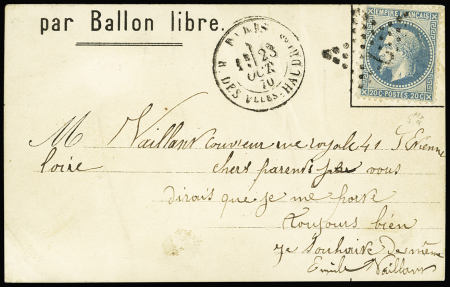 par Ballon libre.
PARIS
23
OCT
70
R. DES VLLES-HAUDRTES
EMPIRE FRANÇAIS
20C POSTES 20C
M Vaillant couvreur rue royale 41 St Etienne
Loire
chers parents je vous
dirais que je me porte
toujours bien
je souhaite de même
Emile Vaillant